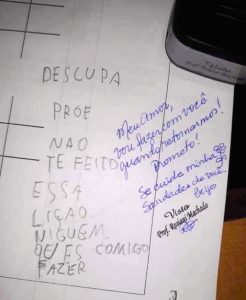 DESCUPA
PROF
NAO
TE FEITO
ESSA
LIÇAO
NIGUEM
QUES COMIGO
FAZER
Meu Amor,
vou fazer com você
quando retornarmos!
Prometo!
Se cuide minha
Saudades de você.
Bejo
Visto
Prof. Machado